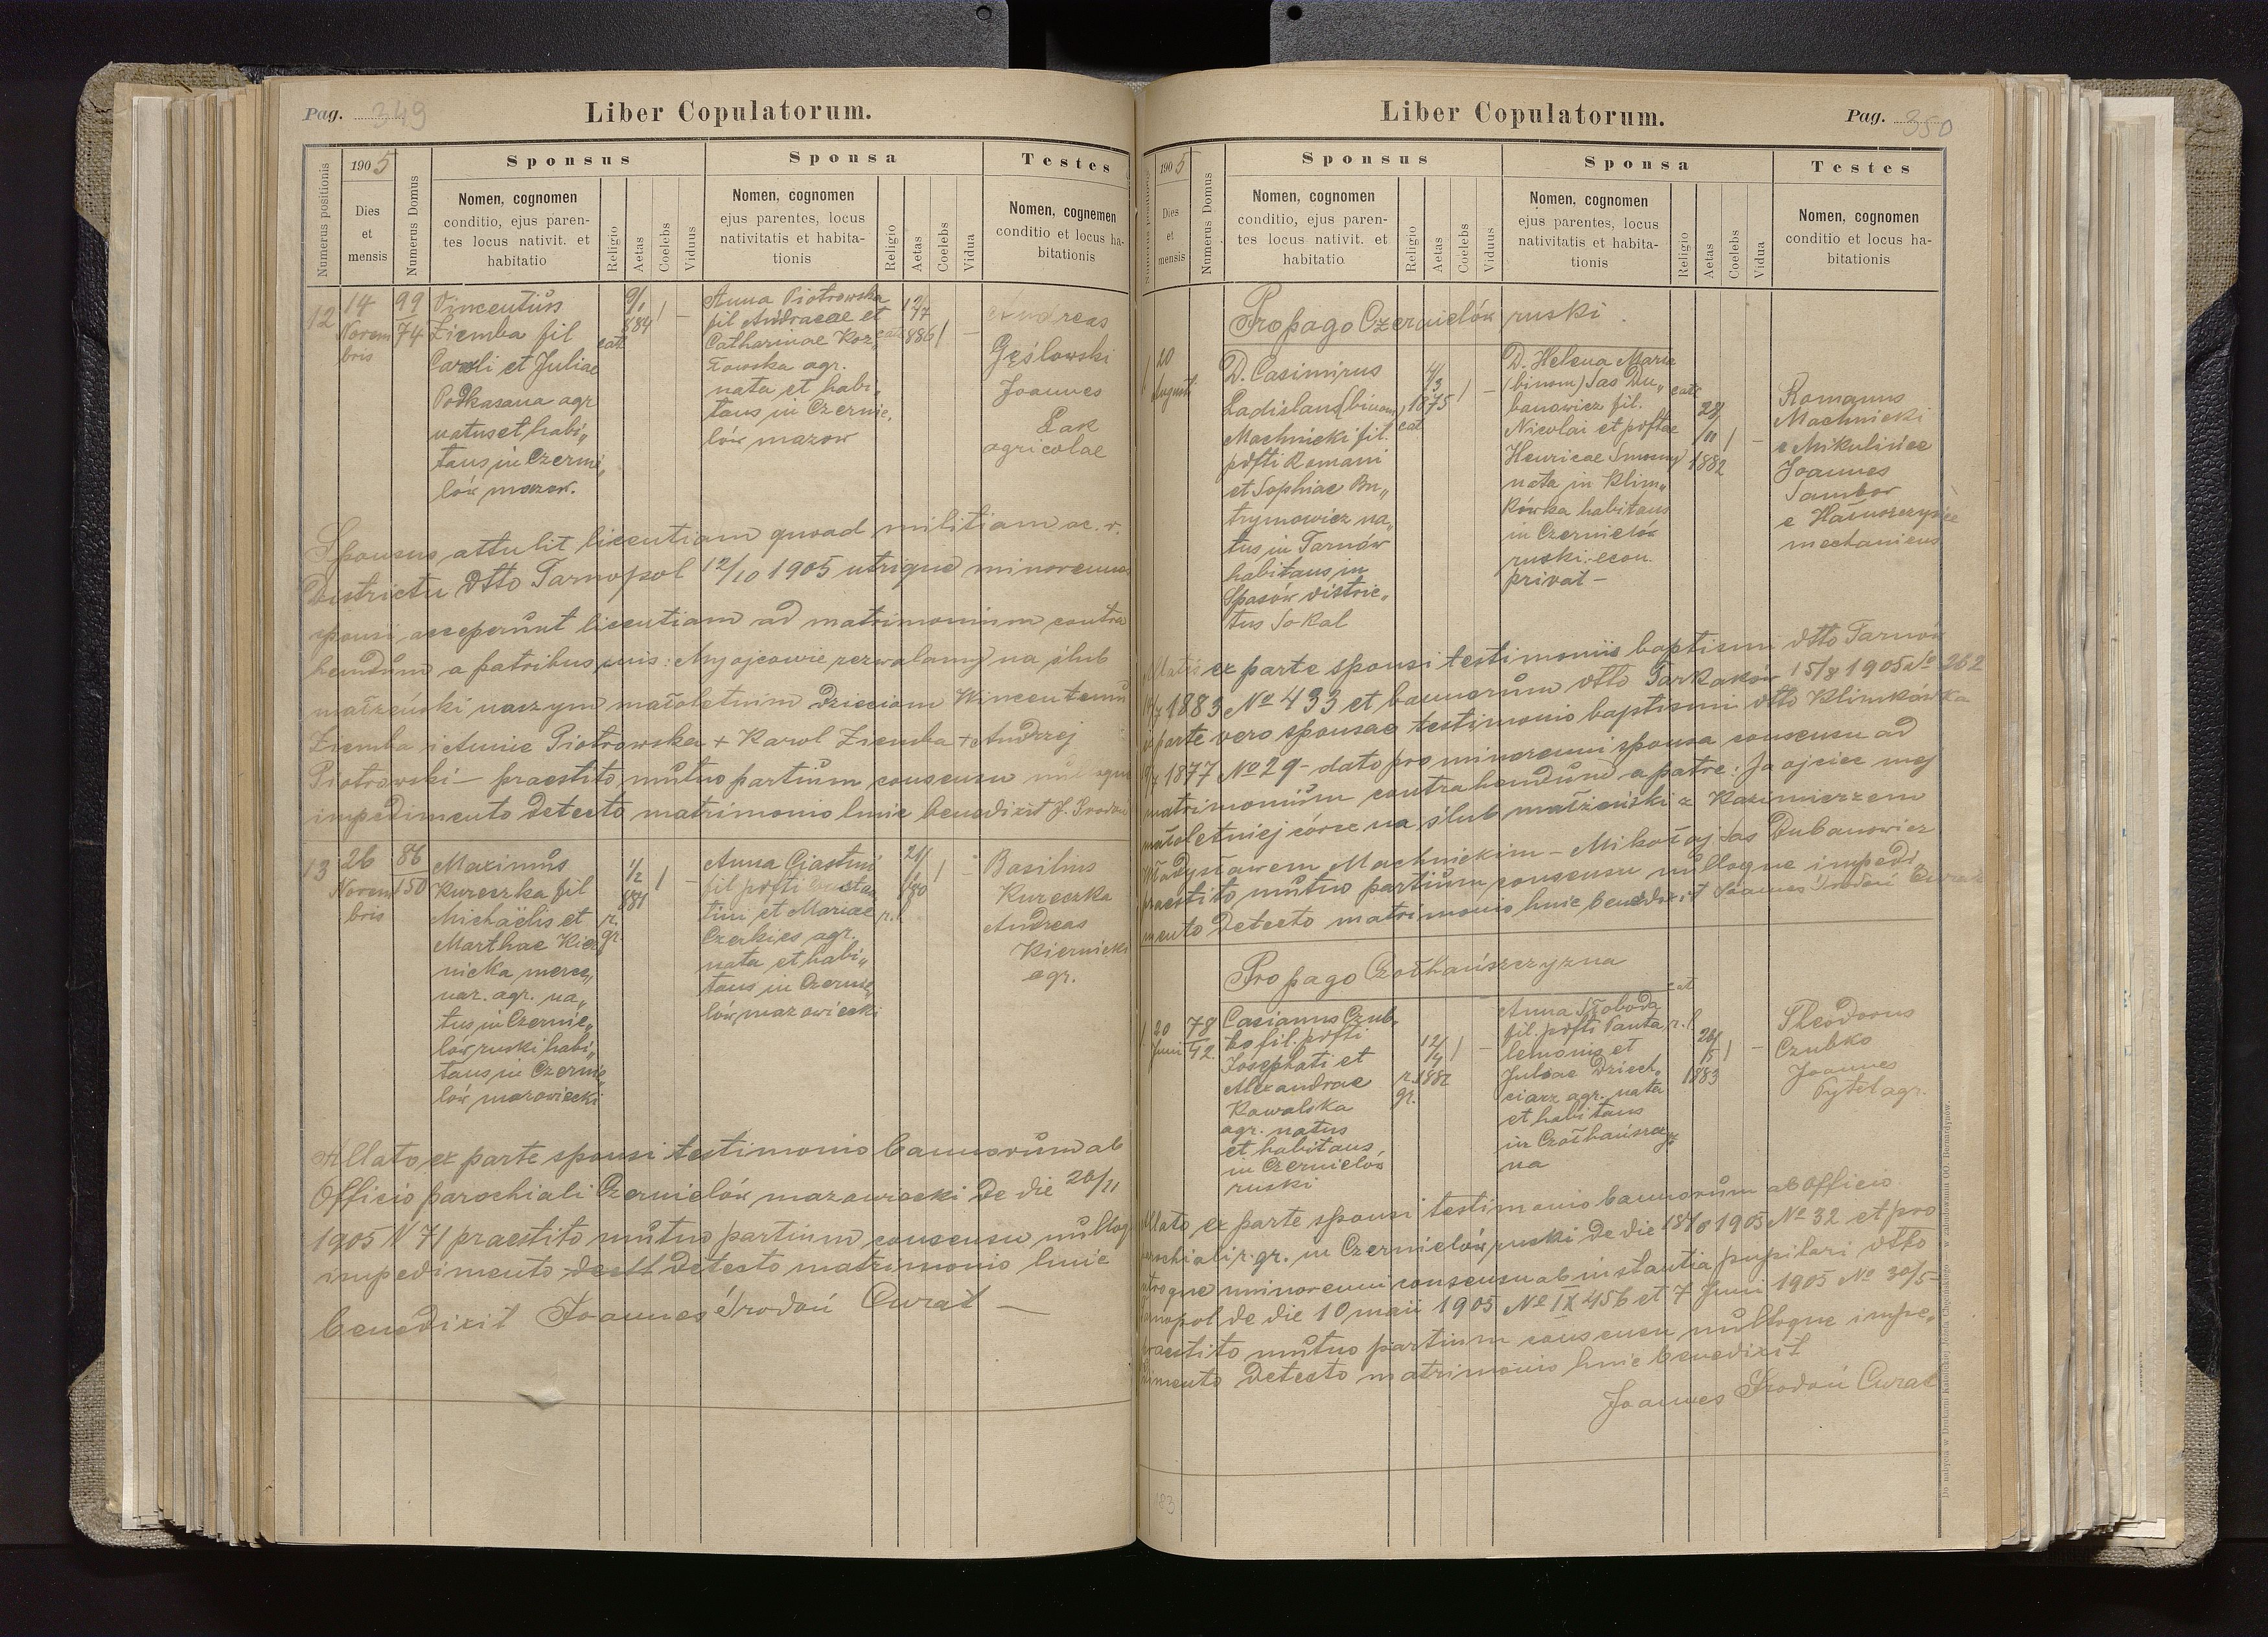 Pag. 349
Liber Copulatorum.
Numerus positionis
1905
Dies
et
mensis
Numerus Domus
Sponsus
Nomen, cognomen
conditio, ejus paren-
tes locus nativit. et
habitatio
Religio
Aetas
Coelebs
Viduus
Sponsa
Nomen, cognomen
ejus parentes, locus
nativitatis et habita-
tionis
Religio
Aetas
Coelebs
Vidua
Testes
Nomen, cognemen
conditio et locus ha-
bitationis
12
14
Novem
bris
99
74
Vincentius
Ziemba fil
Caroli et Juliae
Podkasana agr
natus et habi„
tans in Czernie„
lów mazow.
cat
9/1
884
1
–
Anna Piotrowska
fil Andreae et
Catharinae Koz„
łowska agr.
nata et habi„
tans in Czernie„
lów mazow
cat
12/
886
1
–
Andreas
Gęślowski
Joannes
Łak
agricolae
Sponsus attulit licentiam quoad militiam a c. r.
Districtu dtto Tarnopol 12/10 1905 utrique minorennes
sponsi acceperunt licentiam ad matrimonium contra
hendum a patribus suis: My ojcowie zezwalamy na ślub
małżeński naszym małoletnim dzieciom Wincentemu
Ziemba i Annie Piotrowska + Karol Ziemba + Andrzej
Piotrowski – praestito mutuo partium consensu
impedimento detecto matrimonio huic benedixit J.
13
26
Novem
bris
86
150
Maximus
Kureczka fil
Michaëlis et
Marthae Kier„
nicka merce„
nar. agr. na„
tus in Czernie„
lów ruski habi„
tans in Czernie„
lów mazowiecki
r.
gr.
1/2
881
1
–
Anna
fil pdfti
tini et Mariae
Czerkies agr.
nata et habi„
tans in Czernie„
lów mazowiecki
r. l.
21/
880
1
–
Basilius
Kureczka
Andreas
Kiernicki
agr.
Allato ex parte sponsi testimonio bannorum ab
Officio parochiali Czernielów mazowiecki de die 20/11
1905 N 71 praestito mutuo partium consensu
impedimento detecto matrimonio huic
benedixit Joannes Środoń Curat –
Liber Copulatorum.
Pag. 350
Numerus positionis
1905
Dies
et
mensis
Numerus Domus
Sponsus
Nomen, cognomen
conditio, ejus paren-
tes locus nativit. et
habitatio
Religio
Aetas
Coelebs
Viduus
Sponsa
Nomen, cognomen
ejus parentes, locus
nativitatis et habita-
tionis
Religio
Aetas
Coelebs
Vidua
Testes
Nomen, cognomen
conditio et locus ha-
bitationis
Propago Czernielów ruski.
1
20
Augusti
D. Casimirus
Ladislaus (binom)
Machnicki fil.
pdfti Romani
et Sophiae Bu„
trymowicz na„
tus in Tarnów
habitans in
Spasów distric„
tus Sokal
cat
4/3
1875
1
–
D. Helena Maria
(binom) Sas Du„
banowicz fil.
Nicolai et pdftae
Henricae
nata in Klim„
kówka habitans
in Czernielów
ruski. econ.
privat –
cat
28/
/11
1882
1
–
Romanus
Machnicki
e Mikulińce
Joannes
Sambor
mechanicus
ex parte sponsi testimonio baptismi dtto Tarnów
1883 No 433 et bannorum dtto Tartaków 15/8 1905 No 282
parte vero sponsae testimonio baptismi dtto Klimkówka
1877 No 29 – dato pro minorenni sponsa consensu ad
matrimonium contrahendum a patre: Ja ojciec mej
małoletniej córce na ślub małżeński z Kazimierzem
Władysławem Machnickim – Mikołaj Sas Dubanowicz
praestito mutuo partium consensu nulloque impedi„
mento detecto matrimonio huic benedixit Joannes Środoń Curat
Propago Czołhańszczyzna
1
20
Juni
78
42
Casianus Czub„
ko fil. pdfti
Josephati et
Alexandrae
Kowalska
agr. natus
et habitans
in Czernielów
ruski
r.
gr.
12/4
1882
1
–
Anna Słoboda
fil. pdfti Panta„
lemonis et
Juliae Dziech„
ciarz agr. nata
et habitans
in Czołhańszczyz
na
cat
r. l.
26/
/5
1883
1
–
Theodorus
Czubko
Joannes
Pytel agr.
Allato ex parte sponsi testimonio bannorum ab officio
parochiali r. gr. in Czernielów ruski de die 1905 No 32 et pro
utroque minorenni consensu ab instantia pupilari dtto
Tarnopol de die 10 maii 1905 No IX 456 et 7 Juni 1905 No 30/5
praestito mutuo partium consensu nulloque impe„
dimento detecto matrimonio huic benedixit
Joannes Środoń Curat
183